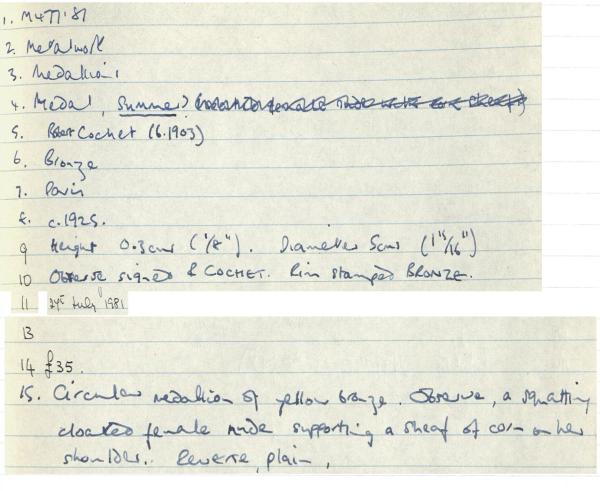 1. M477'81
2. Metalwork
3. Medallions
4. Medal, Summer
5. Robert Cochet (b.1903)
6. Bronze
7. Paris
8. c.1925.
9 Height 0.3cms (1/8"). Diameter 5cms (1 15/16")
10 Obverse signed R COCHET. Rim stamped BRONZE.
11 July 1981
13
14 £35.
15. Circular medallion of yellow bronze. Obverse, a squatting
cloaked female nude supporting a sheaf of corn on her
shoulders.. Reverse, plain,